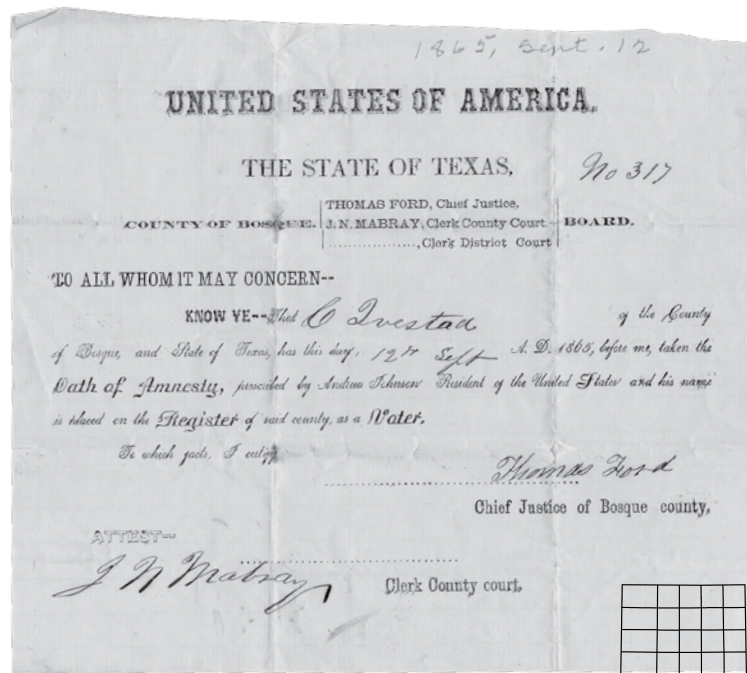 1865, Sept. 12
UNITED STATES OF AMERICA.
THE STATE OF TEXAS.
No 317
THOMAS FORD, Chief Justice.
COUNTY OF BOSQUE. J. N. MABRAY, Clerk County Court BOARD.
...................., Clerk District Court
TO ALL WHOM IT MAY CONCERN--
KNOW YE--That C Qvestad of the County
of Bosque, and State of Texas, has this day, 12th Sept A. D. 1865, before me, taken the
Oath of Amnesty, prescribed by Andrew Johnson President of the United States and his name
is placed on the Register of said county, as a Voter.
To which facts, I certify
Thomas Ford
Chief Justice of Bosque county,
ATTEST--
J N Mabray Clerk County court.